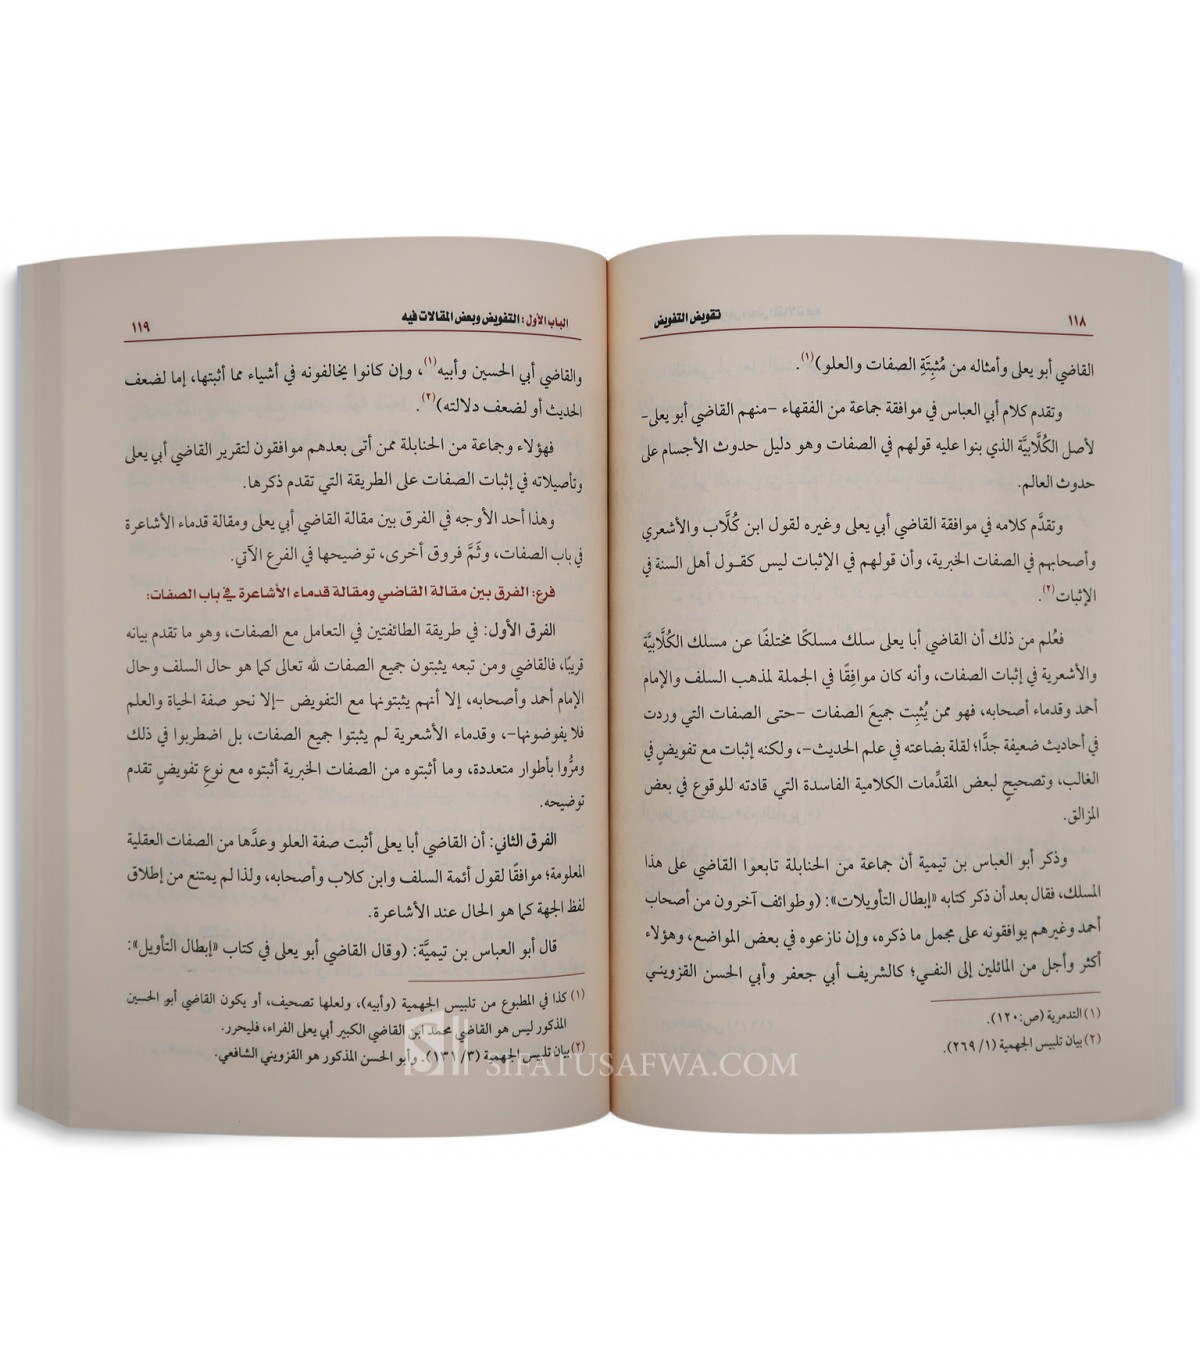 ١١٨
تقويض التفويض
القاضي أبو يعلى وأمثاله من مُثبِتَةِ الصفات والعلو)(١).
وتقدم كلام أبي العباس في موافقة جماعة من الفقهاء -منهم القاضي أبو يعلى-
لأصل الكُلَّابيَّة الذي بنوا عليه قولهم في الصفات وهو دليل حدوث الأجسام على
حدوث العالم.
وتقدَّم كلامه في موافقة القاضي أبي يعلى وغيره لقول ابن كُلَّاب والأشعري
وأصحابهم في الصفات الخبرية، وأن قولهم في الإثبات ليس كقول أهل السنة في
الإثبات(٢).
فعُلم من ذلك أن القاضي أبا يعلى سلك مسلكًا مختلفًا عن مسلك الكُلَّابيَّة
والأشعرية في إثبات الصفات، وأنه كان موافِقًا في الجملة لمذهب السلف والإمام
أحمد وقدماء أصحابه، فهو ممن يُثبِت جميعَ الصفات -حتى الصفات التي وردت
في أحاديث ضعيفة جدًّا؛ لقلة بضاعته في علم الحديث-، ولكنه إثبات مع تفويض في
الغالب، وتصحيحٍ لبعض المقدِّمات الكلامية الفاسدة التي قادته للوقوع في بعض
المزالق.
وذكر أبو العباس بن تيمية أن جماعة من الحنابلة تابعوا القاضي على هذا
المسلك، فقال بعد أن ذكر كتابه «إبطال التأويلات»: (وطوائف آخرون من أصحاب
أحمد وغيرهم يوافقونه على مجمل ما ذكره، وإن نازعوه في بعض المواضع، وهؤلاء
أكثر وأجل من المائلين إلى النفي؛ كالشريف أبي جعفر وأبي الحسن القزويني
(١) التدمرية (ص:١٢٠).
(٢) بيان تلبيس الجهمية (١/ ٢٦٩).
الباب الأول: التفويض وبعض المقالات فيه
١١٩
والقاضي أبي الحسين وأبيه(١)، وإن كانوا يخالفونه في أشياء مما أثبتها، إما لضعف
الحديث أو لضعف دلالته)(٢).
فهؤلاء وجماعة من الحنابلة ممن أتى بعدهم موافقون لتقرير القاضي أبي يعلى
وتأصيلاته في إثبات الصفات على الطريقة التي تقدم ذكرها.
وهذا أحد الأوجه في الفرق بين مقالة القاضي أبي يعلى ومقالة قدماء الأشاعرة
في باب الصفات، وثَمَّ فروق أخرى، توضيحها في الفرع الآتي.
فرع: الفرق بين مقالة القاضي ومقالة قدماء الأشاعرة في باب الصفات:
الفرق الأول: في طريقة الطائفتين في التعامل مع الصفات، وهو ما تقدم بيانه
قريبًا، فالقاضي ومن تبعه يثبتون جميع الصفات لله تعالى كما هو حال السلف وحال
الإمام أحمد وأصحابه، إلا أنهم يثبتونها مع التفويض -إلا نحو صفة الحياة والعلم
فلا يفوضونها-، وقدماء الأشعرية لم يثبتوا جميع الصفات، بل اضطربوا في ذلك
ومرُّوا بأطوار متعددة، وما أثبتوه من الصفات الخبرية أثبتوه مع نوعِ تفويضٍ تقدم
توضيحه.
الفرق الثاني: أن القاضي أبا يعلى أثبت صفة العلو وعدَّها من الصفات العقلية
المعلومة؛ موافقًا لقول أئمة السلف وابن كلاب وأصحابه، ولذا لم يمتنع من إطلاق
لفظ الجهة كما هو الحال عند الأشاعرة.
قال أبو العباس بن تيميَّة: (وقال القاضي أبو يعلى في كتاب «إبطال التأويل»:
(١) كذا في المطبوع من تلبيس الجهمية (وأبيه)، ولعلها تصحيف، أو يكون القاضي أبو الحسين
المذكور ليس هو القاضي محمد ابن القاضي الكبير أبي يعلى الفراء، فليحرر.
(٢) بيان تلبيس الجهمية (٣/ ١٣١). وأبو الحسن المذكور هو القزويني الشافعي.
SIFATUSAFWA.COM